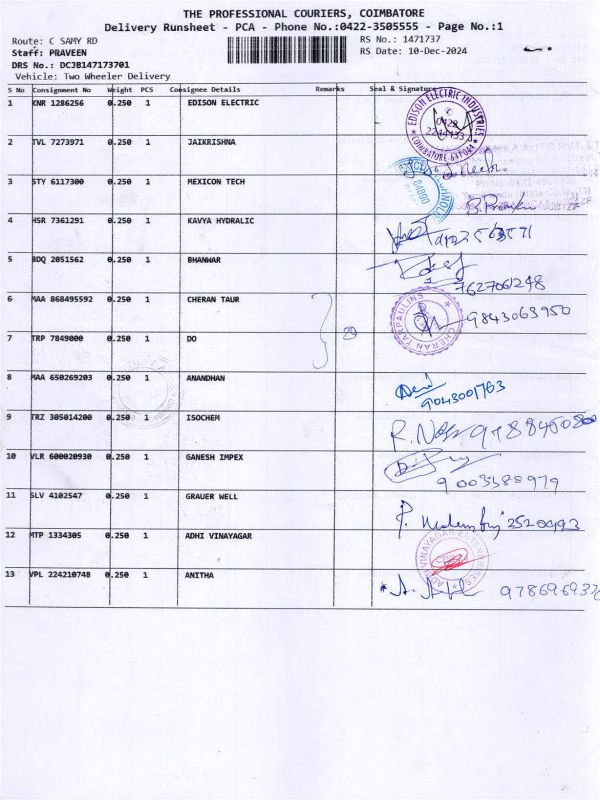 THE PROFESSIONAL COURIERS, COIMBATORE
Delivery Runsheet - PCA - Phone No.:0422-3505555 - Page No.:1
Route: C SAMY RD RS No.: 1471737
Staff: PRAVEEN RS Date: 10-Dec-2024
DRS No.: DCJB147173701
Vehicle: Two Wheeler Delivery
S No Consignment No Weight PCS Consignee Details Remarks Seal & Signature
1 KNR 1286256 0.250 1 EDISON ELECTRIC EDISON ELECTRIC INDUSTRIES COIMBATORE
2 TVL 7273971 0.250 1 JAIKRISHNA
3 STY 6117300 0.250 1 MEXICON TECH
4 HSR 7361291 0.250 1 KAVYA HYDRALIC
5 BDQ 2051562 0.250 1 BHANWAR 7627061248
6 MAA 868495592 0.250 1 CHERAN TAUR CHERAN TARPAULINS 9843063950
7 TRP 7849000 0.250 1 DO
8 MAA 650269203 0.250 1 ANANDHAN 9043001763
9 TRZ 305014200 0.250 1 ISOCHEM
10 VLR 600020930 0.250 1 GANESH IMPEX 9003385979
11 SLV 4102547 0.250 1 GRAUER WELL 2520493
12 MTP 1334305 0.250 1 ADHI VINAYAGAR ADHI VINAYAGAR ENTERPRISES
13 VPL 224210748 0.250 1 ANITHA